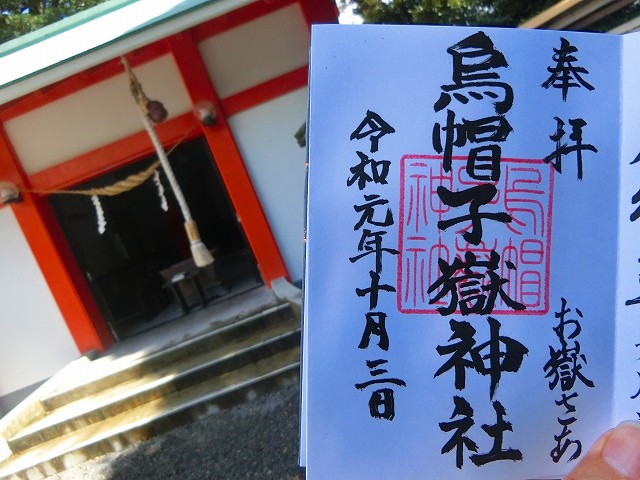 奉拝
お嶽さあ
烏帽子嶽神社
烏帽子嶽神社
令和元年十月三日